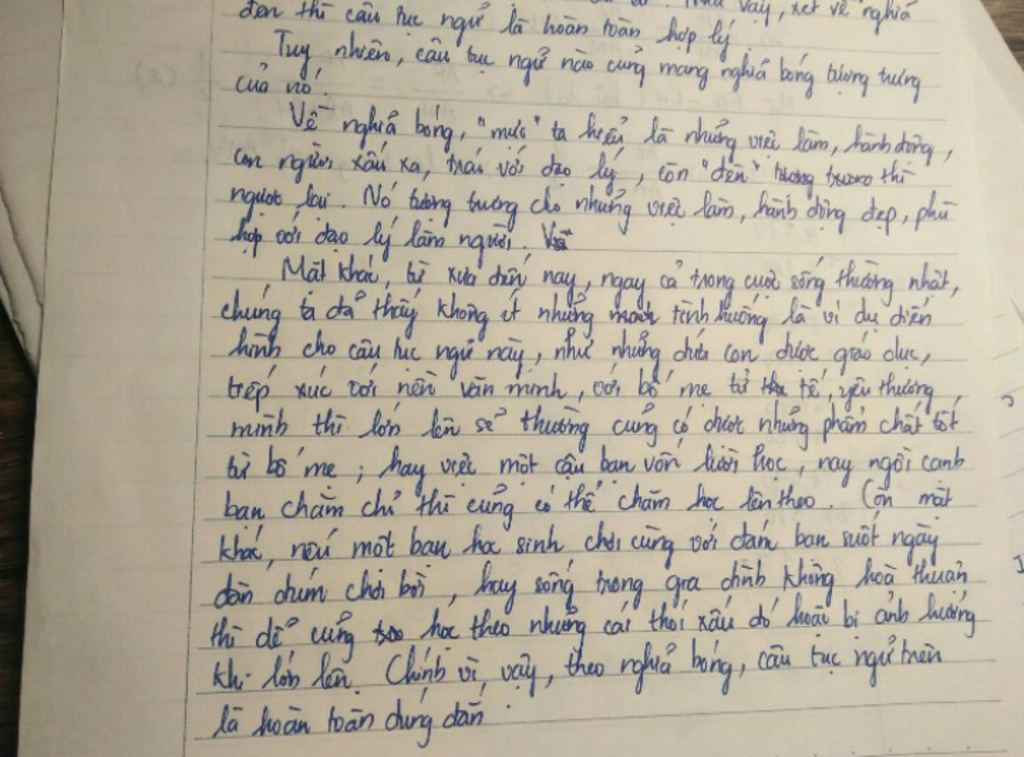 vậy, xét về nghĩa
đen thì câu tục ngữ là hoàn toàn hợp lý.
Tuy nhiên, câu tục ngữ nào cũng mang nghĩa bóng tượng trưng
của nó.
Về nghĩa bóng, "mực" ta hiểu là những việc làm, hành động,
con người xấu xa, trái với đạo lý, còn "đèn" tượng trưng thì
ngược lại. Nó tượng trưng cho những việc làm, hành động đẹp, phù
hợp với đạo lý làm người.
Mặt khác, từ xưa đến nay, ngay cả trong cuộc sống thường nhật,
chúng ta đã thấy không ít những tình huống là ví dụ điển
hình cho câu tục ngữ này, như những đứa con được giáo dục,
tiếp xúc với nền văn minh, với bố mẹ tử tế, yêu thương
mình thì lớn lên sẽ thường cũng có được những phẩm chất tốt
từ bố mẹ; hay việc một cậu bạn vốn lười học, nay ngồi cạnh
bạn chăm chỉ thì cũng có thể chăm học lên theo. Còn mặt
khác, nếu một bạn học sinh chơi cùng với đám bạn suốt ngày
đàn đúm chơi bời, hay sống trong gia đình không hoà thuận
thì dễ cũng học theo những cái thói xấu đó hoặc bị ảnh hưởng
khi lớn lên. Chính vì vậy, theo nghĩa bóng, câu tục ngữ trên
là hoàn toàn đúng đắn.